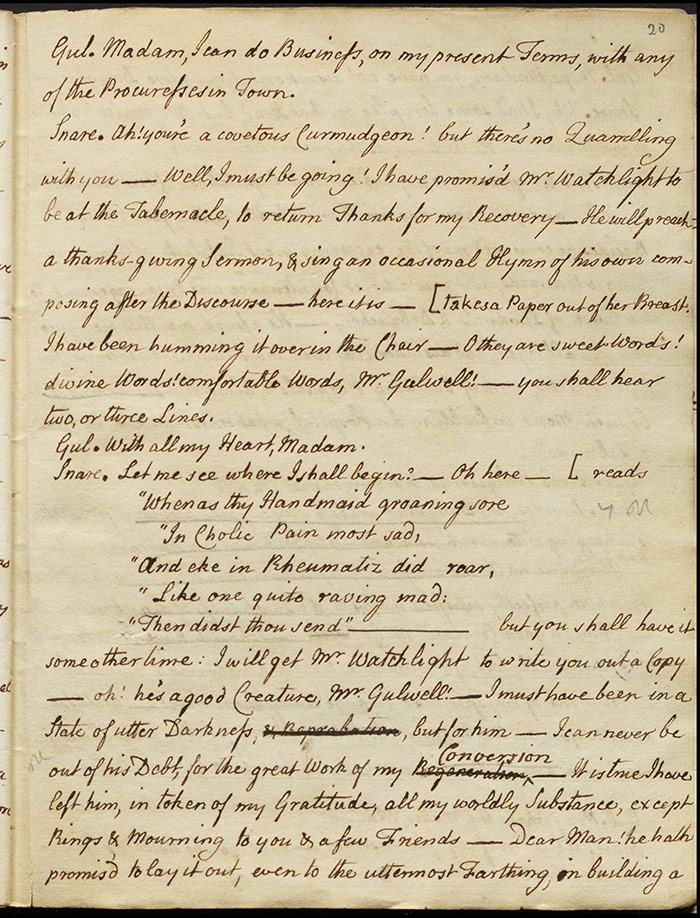 20
Gul. Madam, I can do Business, on my present Terms, with any
of the Procuresses in Town.
Snare. Ah! you're a covetous Curmudgeon! but there's no Quarrelling
with you — Well, I must be going! I have promis'd Mr. Watchlight to
be at the Tabernacle, to return Thanks for my Recovery — He will preach
a thanks-giving Sermon, & sing an occasional Hymn of his own com-
posing after the Discourse — here it is — [takes a Paper out of her Breast.
I have been humming it over in the Chair — O they are sweet Words!
divine Words! comfortable Words, Mr. Gulwell! — you shall hear
two, or three Lines.
Gul. With all my Heart, Madam.
Snare. Let me see where I shall begin? — Oh here — [reads
"When as thy Handmaid groaning sore
"In Cholic Pain most sad,
"And eke in Rheumatiz did roar,
"Like one quite raving mad:
"Then didst thou send" — but you shall have it
some other time: I will get Mr. Watchlight to write you out a Copy
— oh! he's a good Creature, Mr. Gulwell! — I must have been in a
State of utter Darkness, & Reprobation, but for him — I can never be
out of his Debt, for the great Work of my Regeneration, Conversion — It is true I have
left him, in token of my Gratitude, all my worldly Substance, except
Rings & Mourning to you & a few Friends — Dear Man! he hath
promis'd to lay it out, even to the uttermost Farthing, in building a